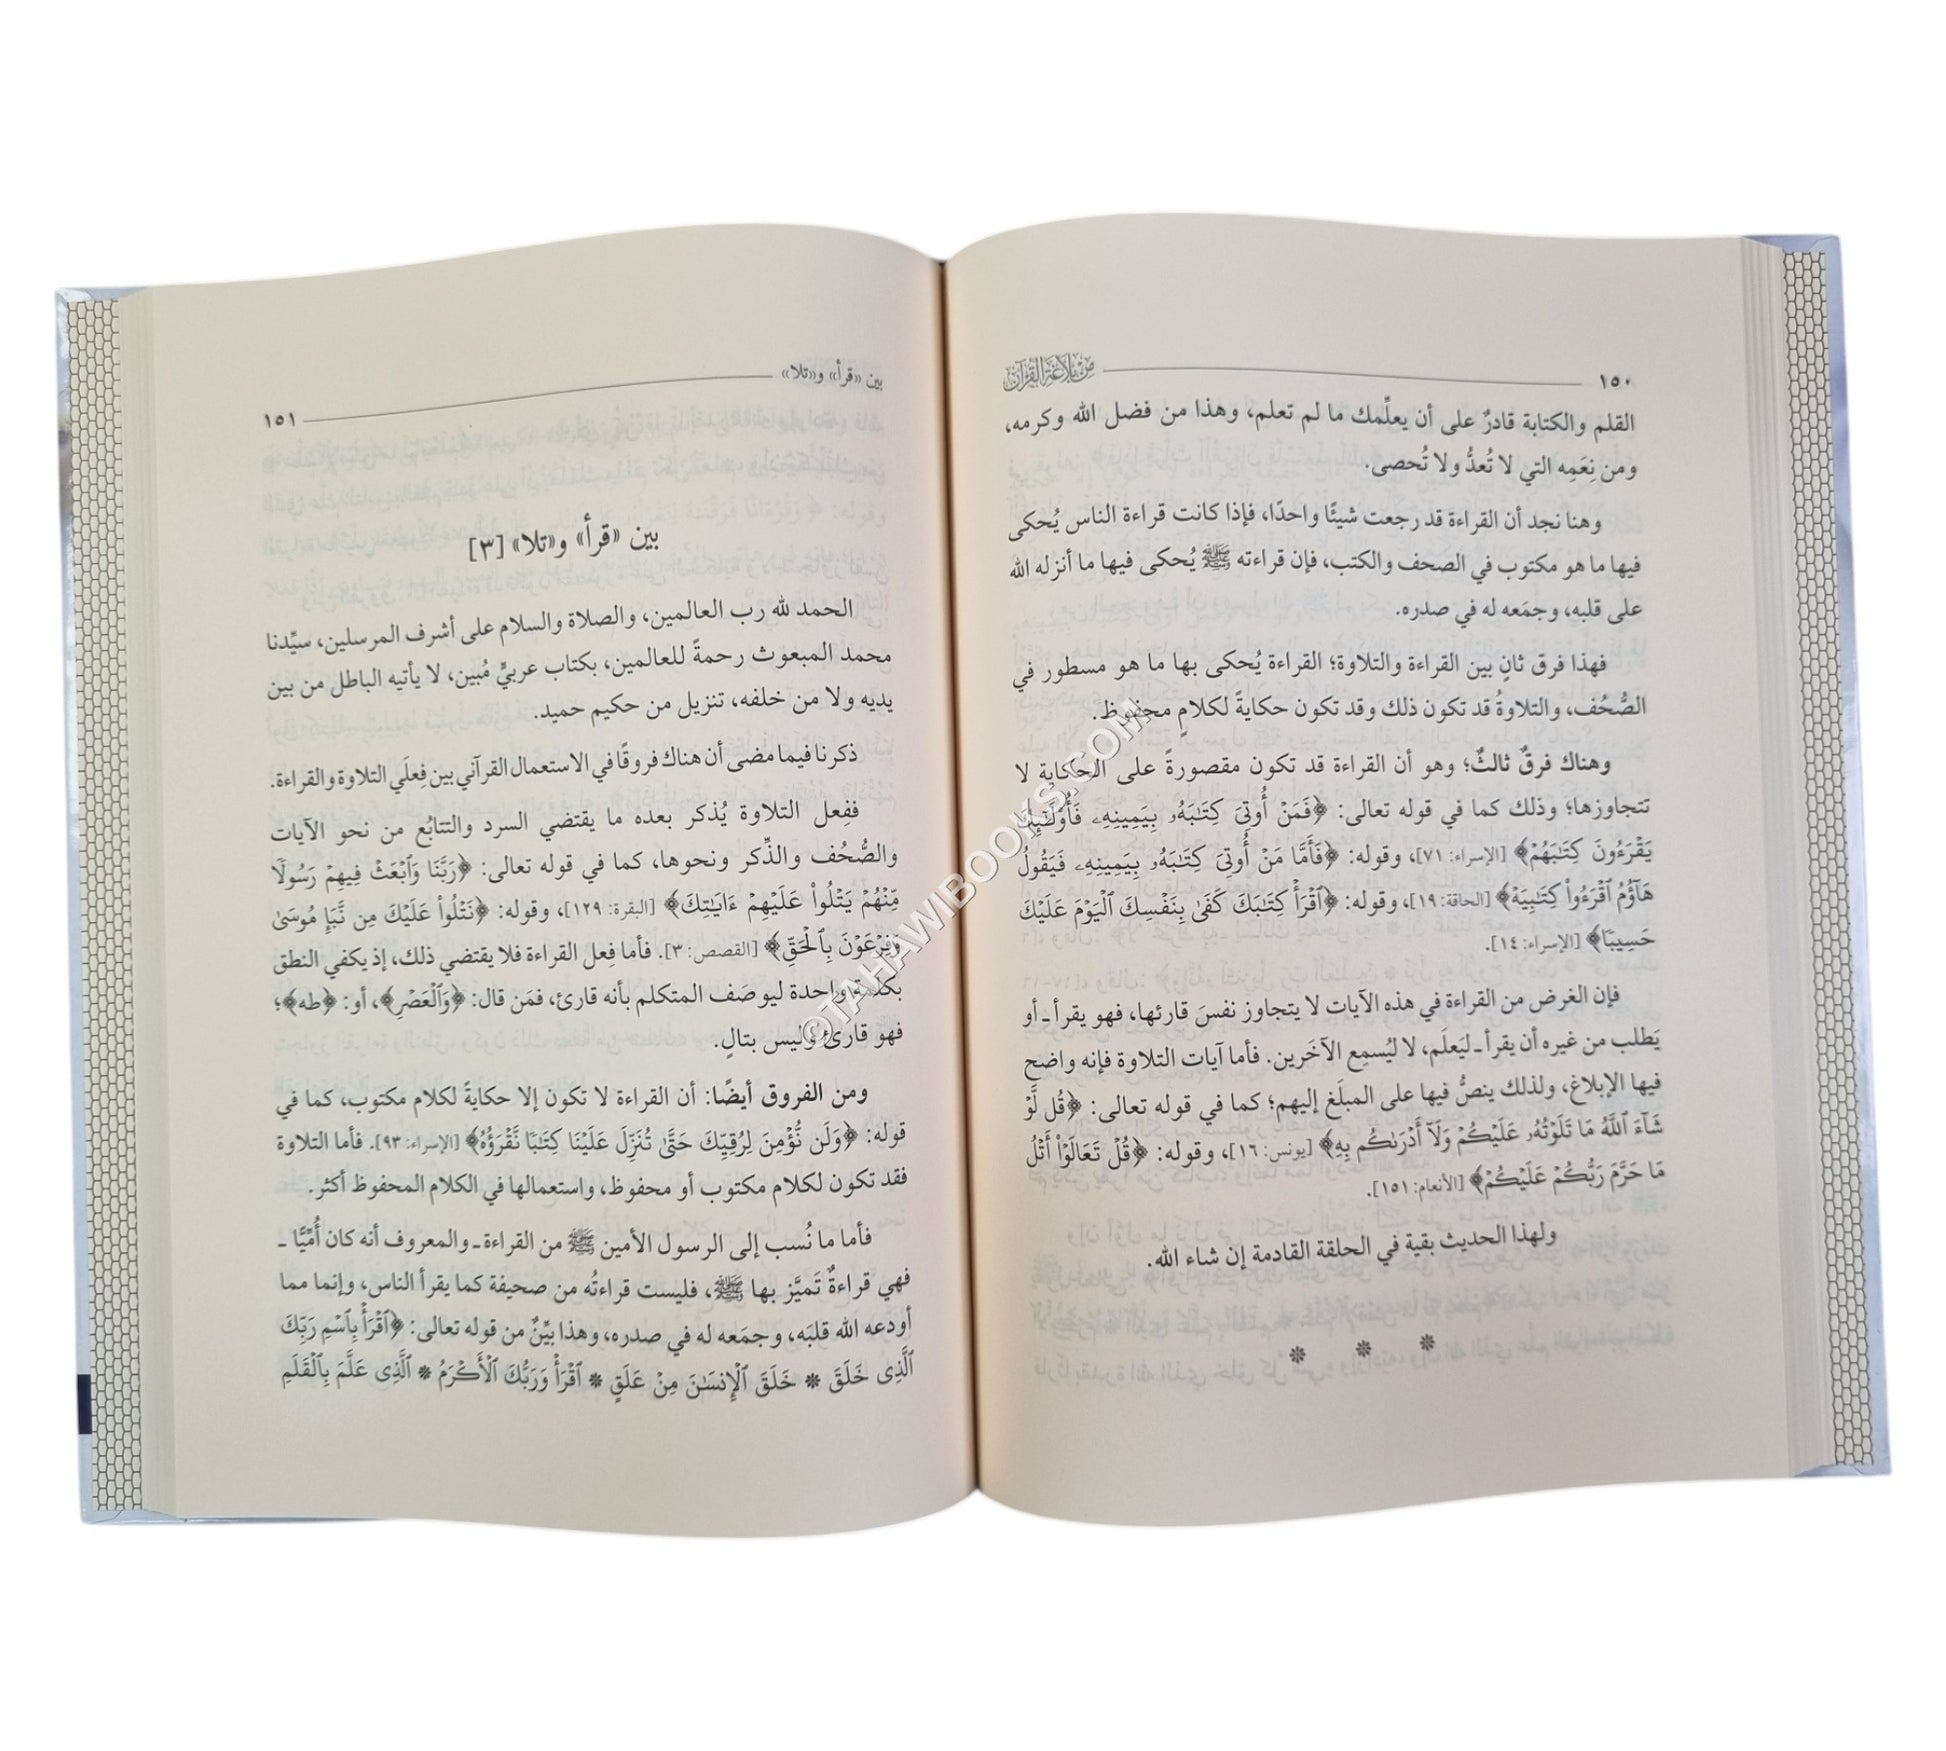 ١٥٠ من بلاغة القرآن
القلم والكتابة قادرٌ على أن يعلِّمك ما لم تعلم، وهذا من فضل الله وكرمه،
ومن نِعَمِه التي لا تُعدُّ ولا تُحصى.
وهنا نجد أن القراءة قد رجعت شيئًا واحدًا، فإذا كانت قراءة الناس يُحكى
فيها ما هو مكتوب في الصحف والكتب، فإن قراءته ﷺ يُحكى فيها ما أنزله الله
على قلبه، وجمَعه له في صدره.
فهذا فرق ثانٍ بين القراءة والتلاوة؛ القراءة يُحكى بها ما هو مسطور في
الصُّحُف، والتلاوةُ قد تكون ذلك وقد تكون حكايةً لكلامٍ محفوظ.
وهناك فرقٌ ثالثٌ؛ وهو أن القراءة قد تكون مقصورةً على الحكاية لا
تتجاوزها؛ وذلك كما في قوله تعالى: ﴿فَمَنْ أُوتِىَ كِتَٰبَهُۥ بِيَمِينِهِۦ فَأُو۟لَٰٓئِكَ
يَقْرَءُونَ كِتَٰبَهُمْ﴾ [الإسراء: ٧١]، وقوله: ﴿فَأَمَّا مَنْ أُوتِىَ كِتَٰبَهُۥ بِيَمِينِهِۦ فَيَقُولُ
هَآؤُمُ ٱقْرَءُوا۟ كِتَٰبِيَهْ﴾ [الحاقة: ١٩]، وقوله: ﴿ٱقْرَأْ كِتَٰبَكَ كَفَىٰ بِنَفْسِكَ ٱلْيَوْمَ عَلَيْكَ
حَسِيبًا﴾ [الإسراء: ١٤].
فإن الغرض من القراءة في هذه الآيات لا يتجاوز نفسَ قارئها، فهو يقرأ ـ أو
يَطلب من غيره أن يقرأ ـ ليَعلَم، لا ليُسمِع الآخَرين. فأما آيات التلاوة فإنه واضح
فيها الإبلاغ، ولذلك ينصُّ فيها على المبلَغ إليهم؛ كما في قوله تعالى: ﴿قُل لَّوْ
شَآءَ ٱللَّهُ مَا تَلَوْتُهُۥ عَلَيْكُمْ وَلَآ أَدْرَىٰكُم بِهِۦ﴾ [يونس: ١٦]، وقوله: ﴿قُلْ تَعَالَوْا۟ أَتْلُ
مَا حَرَّمَ رَبُّكُمْ عَلَيْكُمْ﴾ [الأنعام: ١٥١].
ولهذا الحديث بقية في الحلقة القادمة إن شاء الله.
* * *
بين «قرأ» و«تلا» ١٥١
بين «قرأ» و«تلا» [٣]
الحمد لله رب العالمين، والصلاة والسلام على أشرف المرسلين، سيِّدنا
محمد المبعوث رحمةً للعالمين، بكتاب عربيٍّ مُبين، لا يأتيه الباطل من بين
يديه ولا من خلفه، تنزيل من حكيم حميد.
ذكرنا فيما مضى أن هناك فروقًا في الاستعمال القرآني بين فِعلَي التلاوة والقراءة.
ففِعل التلاوة يُذكر بعده ما يقتضي السرد والتتابُع من نحو الآيات
والصُّحُف والذِّكر ونحوها، كما في قوله تعالى: ﴿رَبَّنَا وَٱبْعَثْ فِيهِمْ رَسُولًا
مِّنْهُمْ يَتْلُوا۟ عَلَيْهِمْ ءَايَٰتِكَ﴾ [البقرة: ١٢٩]، وقوله: ﴿نَتْلُوا۟ عَلَيْكَ مِن نَّبَإِ مُوسَىٰ
وَفِرْعَوْنَ بِٱلْحَقِّ﴾ [القصص: ٣]. فأما فِعل القراءة فلا يقتضي ذلك، إذ يكفي النطق
بكلمة واحدة ليوصَف المتكلم بأنه قارئ، فمَن قال: ﴿وَٱلْعَصْرِ﴾، أو: ﴿طه﴾؛
فهو قارئ وليس بتالٍ.
ومن الفروق أيضًا: أن القراءة لا تكون إلا حكايةً لكلام مكتوب، كما في
قوله: ﴿وَلَن نُّؤْمِنَ لِرُقِيِّكَ حَتَّىٰ تُنَزِّلَ عَلَيْنَا كِتَٰبًا نَّقْرَؤُهُۥ﴾ [الإسراء: ٩٣]. فأما التلاوة
فقد تكون لكلام مكتوب أو محفوظ، واستعمالها في الكلام المحفوظ أكثر.
فأما ما نُسب إلى الرسول الأمين ﷺ من القراءة ـ والمعروف أنه كان أُمِّيًّا ـ
فهي قراءةٌ تَميَّز بها ﷺ، فليست قراءتُه من صحيفة كما يقرأ الناس، وإنما مما
أودعه الله قلبَه، وجمَعه له في صدره، وهذا بيِّنٌ من قوله تعالى: ﴿ٱقْرَأْ بِٱسْمِ رَبِّكَ
ٱلَّذِى خَلَقَ * خَلَقَ ٱلْإِنسَٰنَ مِنْ عَلَقٍ * ٱقْرَأْ وَرَبُّكَ ٱلْأَكْرَمُ * ٱلَّذِى عَلَّمَ بِٱلْقَلَمِ
©TAHAWIBOOKS.SOM